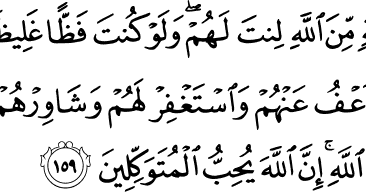 مِّنَ ٱللَّهِ لِنتَ لَهُمۡۖ وَلَوۡ كُنتَ فَظًّا غَلِيظَ
عۡفُ عَنۡهُمۡ وَٱسۡتَغۡفِرۡ لَهُمۡ وَشَاوِرۡهُمۡ
ٱللَّهِۚ إِنَّ ٱللَّهَ يُحِبُّ ٱلۡمُتَوَكِّلِينَ ١٥٩